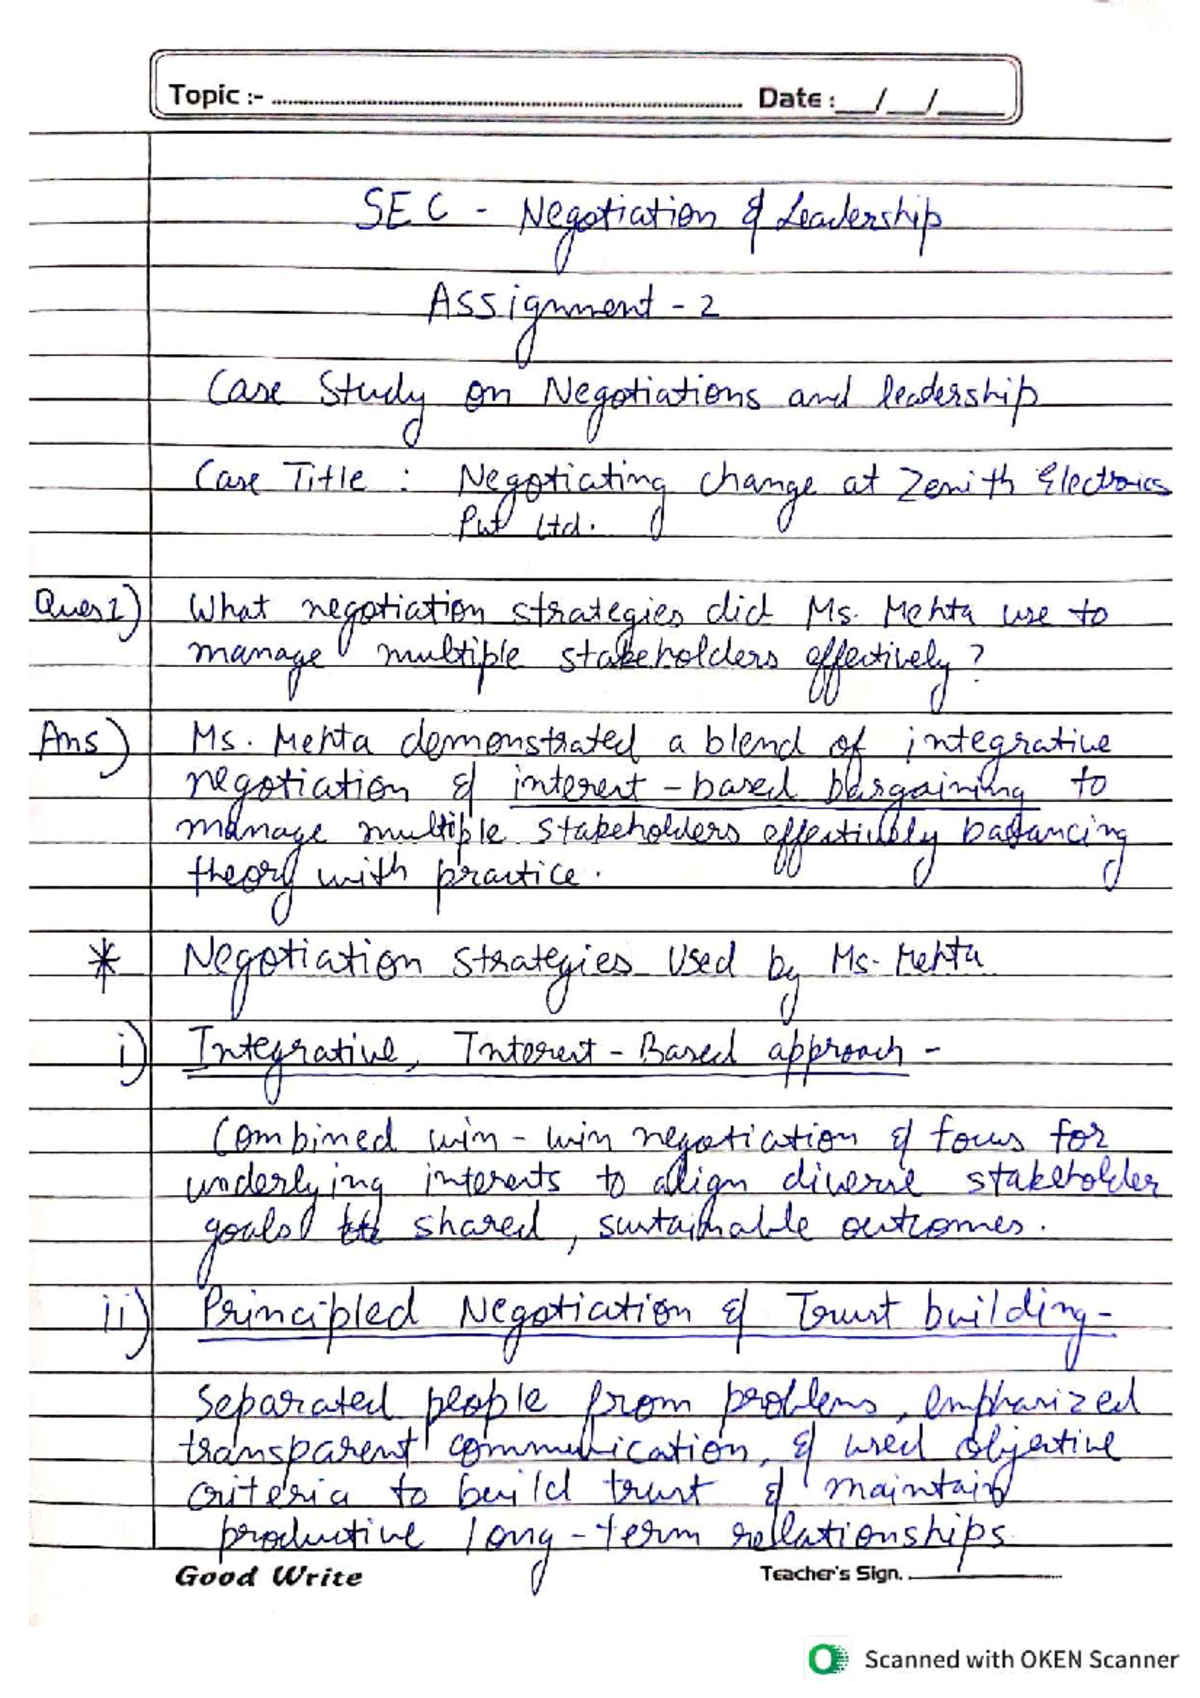 Topic :- Date : __/__/____
SEC - Negotiation & Leadership
Assignment - 2
Case Study on Negotiations and leadership
Case Title : Negotiating change at Zenith Electronics
Pvt Ltd.
Ques 1) What negotiation strategies did Ms. Mehta use to
manage multiple stakeholders effectively ?
Ans) Ms. Mehta demonstrated a blend of integrative
negotiation & interest-based bargaining to
manage multiple stakeholders effectively balancing
theory with practice.
* Negotiation Strategies Used by Ms. Mehta
i) Integrative, Interest-Based approach -
Combined win-win negotiation & focus for
underlying interests to align diverse stakeholder
goals shared, sustainable outcomes.
ii) Principled Negotiation & Trust building -
Separated people from problems, emphasized
transparent communication, & used objective
criteria to build trust & maintain
productive long-term relationships
Good Write Teacher's Sign.
Scanned with OKEN Scanner